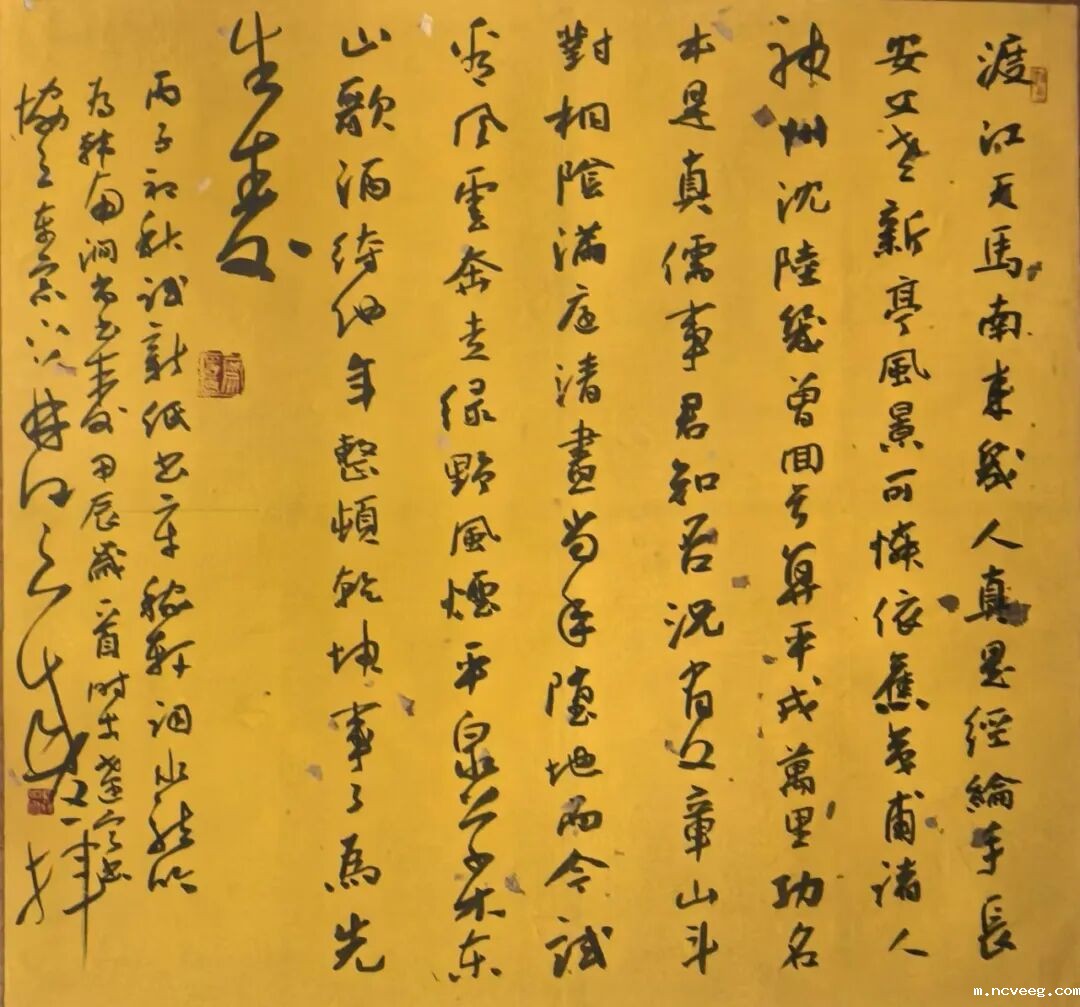 渡江天馬南來幾人真是經綸手長
安父老新亭風景可憐依舊夷甫諸人
神州沈陸幾曾回首算平戎萬里功名
本是真儒事君知否況有文章山斗
對桐陰滿庭清晝當年墮地而今試
看風雲奔走緑野風煙平泉草木东
山歌酒待他年整頓乾坤事了為先
生壽
丙子初秋試新紙書辛稼軒詞水龍吟
為韩南澗尚書壽甲辰歲首時
m.ncveeg.com